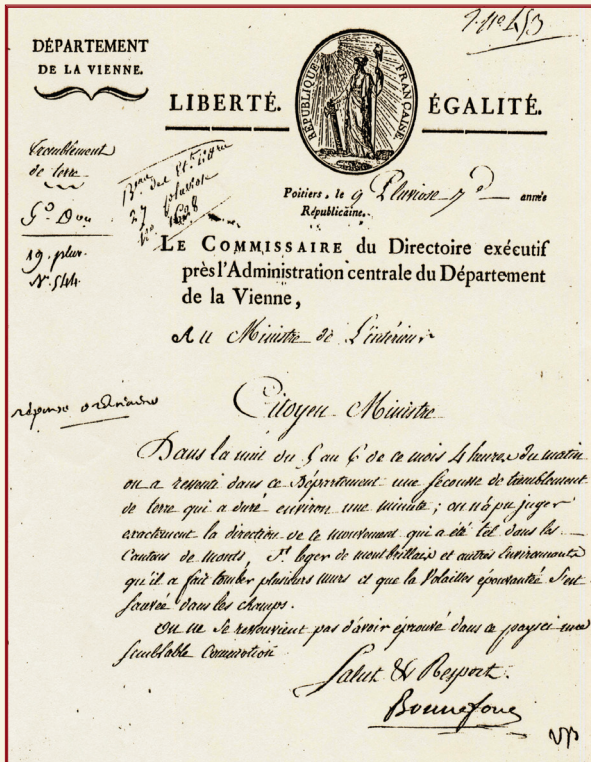 DÉPARTEMENT
DE LA VIENNE.
LIBERTÉ.
RÉPUBLIQUE FRANÇAISE.
ÉGALITÉ.
tremblement
de terre
19. plur.
N°. 544
27 pluviose
Poitiers, le 9 Pluviose 7e année
Républicaine.
LE COMMISSAIRE du Directoire exécutif
près l'Administration centrale du Département
de la Vienne,
Au Ministre de L'intérieur
réponse ordinaire
Citoyen Ministre
Dans la nuit du 5 au 6 de ce mois 4 heures du matin
on a ressenti dans ce Département une secousse de tremblement
de terre qui a duré environ une minute ; on n'a pu juger
exactement la direction de ce mouvement qui a été tel dans les
Cantons de monts St. leger de montbrillais et autres Environnants
qu'il a fait tomber plusieurs murs et que la Volailles épouvantée s'est
sauvée dans les champs.
On ne se ressouvient pas d'avoir éprouvé dans ce pays ci une
semblable Commotion
Salut & Respect.